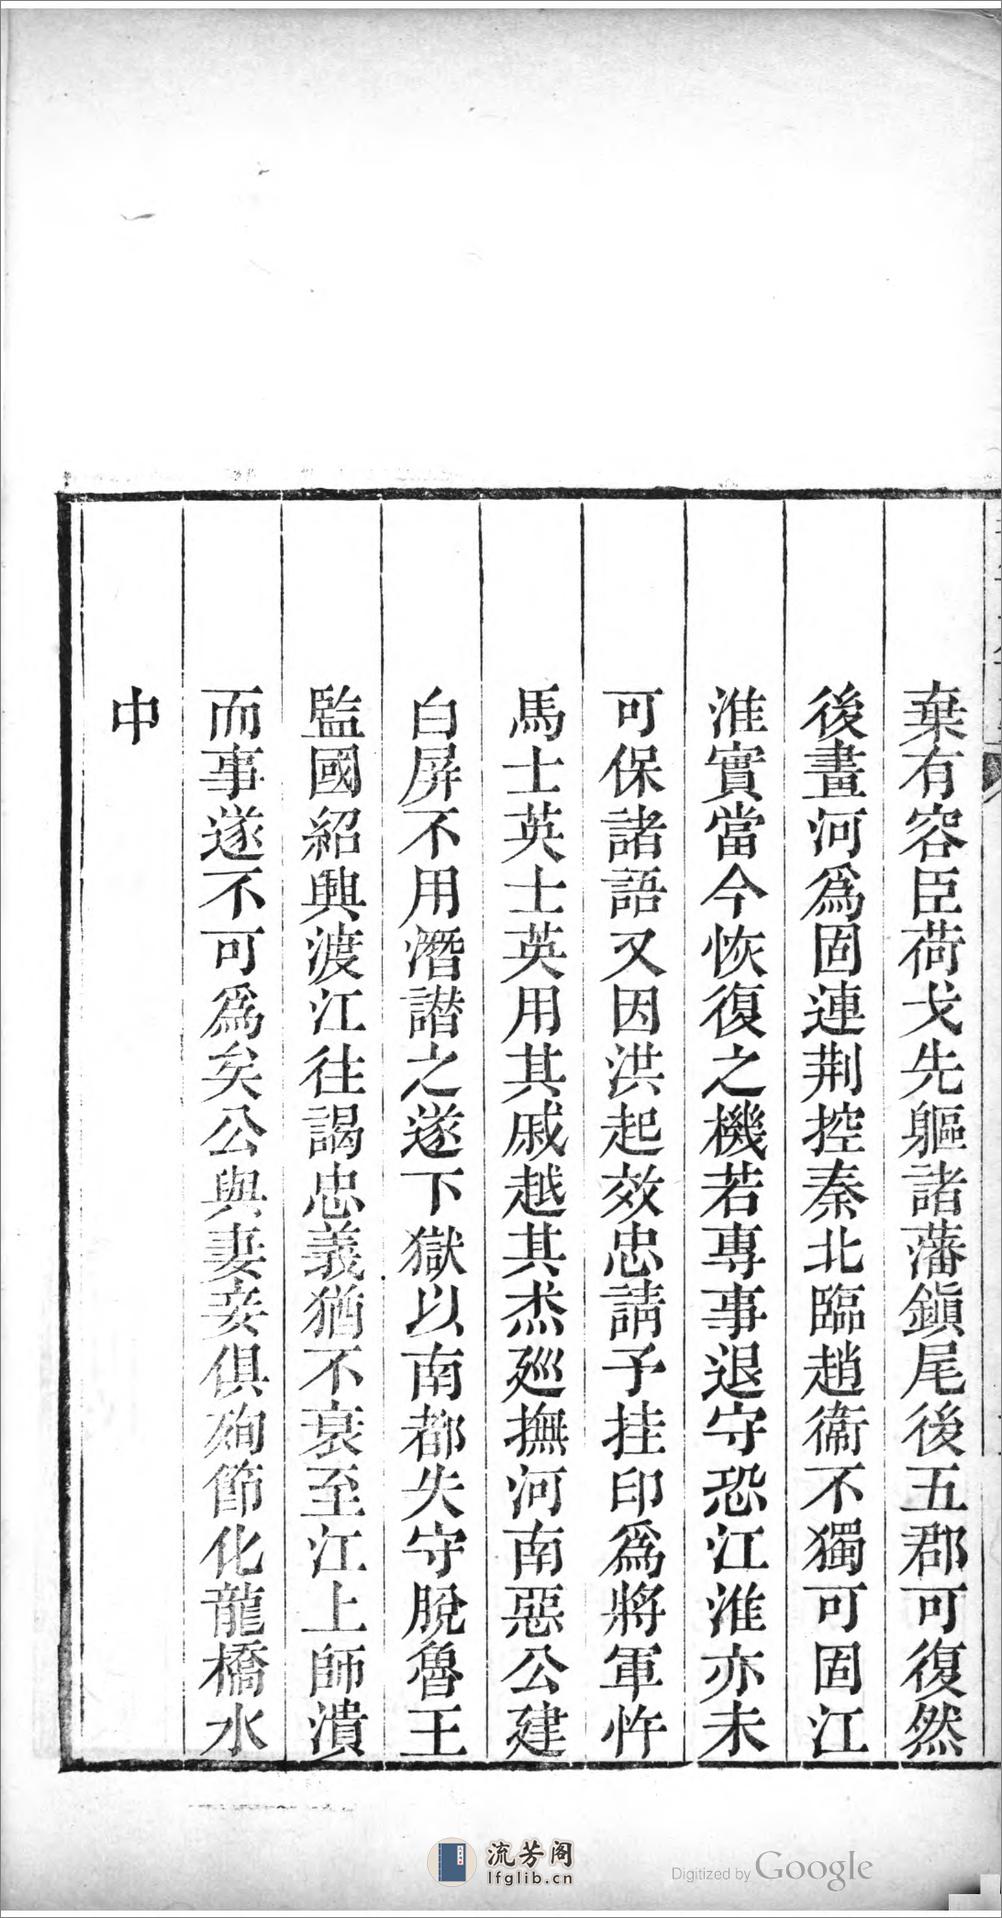 棄有容臣荷戈先軀諸藩鎭尾後五郡可復然
後畫河爲固連荆控秦北臨趙衞不獨可固江
淮實當今恢復之機若專事退守恐江淮亦未
可保諸語又因洪起效忠請予挂印爲將軍忤
馬士英士英用其戚越其杰廵撫河南惡公建
白屏不用潛譖之遂下獄以南都失守脫魯王
監國紹興渡江往謁忠義猶不衰至江上師潰
而事遂不可爲矣公與妻妾俱殉節化龍橋水
中
流芳阁
lfglib.cn
Digitized by Google